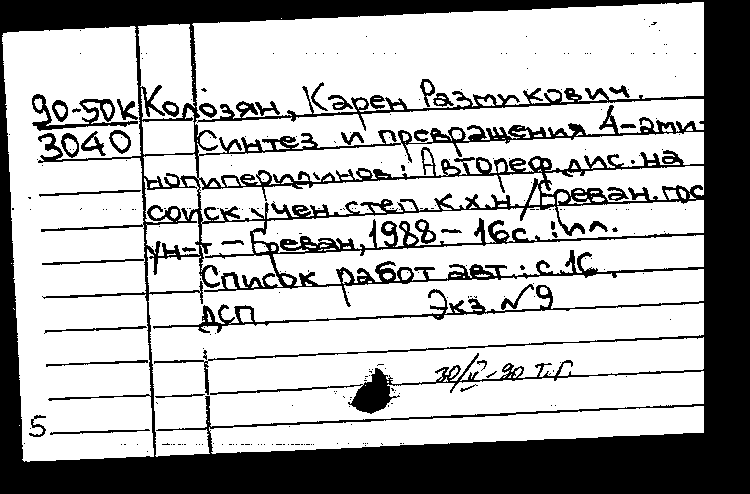 90-50к Колозян, Карен Размикович.
3040 Синтез и превращения 4-ами-
нопиперидинов: Автореф. дис. на
соиск. учен. степ. к.х.н. / Ереван. гос
ун-т. - Ереван, 1988. - 16с. : ил.
Список работ авт.: с.16.
ДСП. Экз. №9
30/V-90 Т.Г.
5